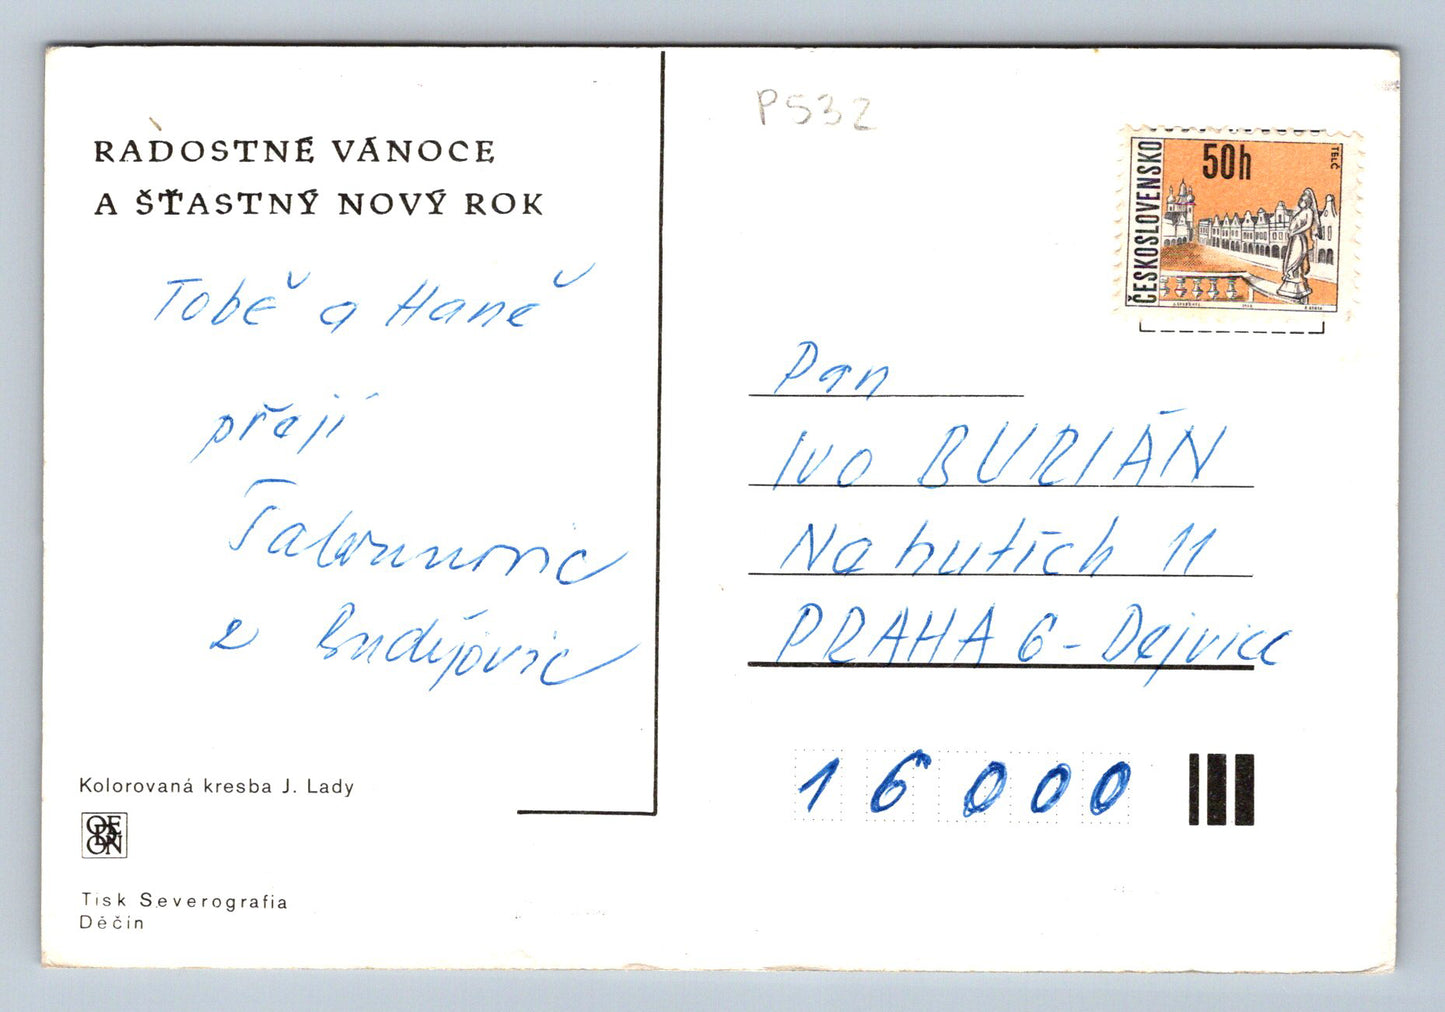 RADOSTNÉ VÁNOCE
A ŠŤASTNÝ NOVÝ ROK
Tobě a Haně
přejí
z Budějovic
Kolorovaná kresba J. Lady
ODEON
Tisk Severografia
Děčín
P532
ČESKOSLOVENSKO
50h
TELČ
Pan
IVO BURIÁN
Na hutích 11
PRAHA 6 - Dejvice
16000